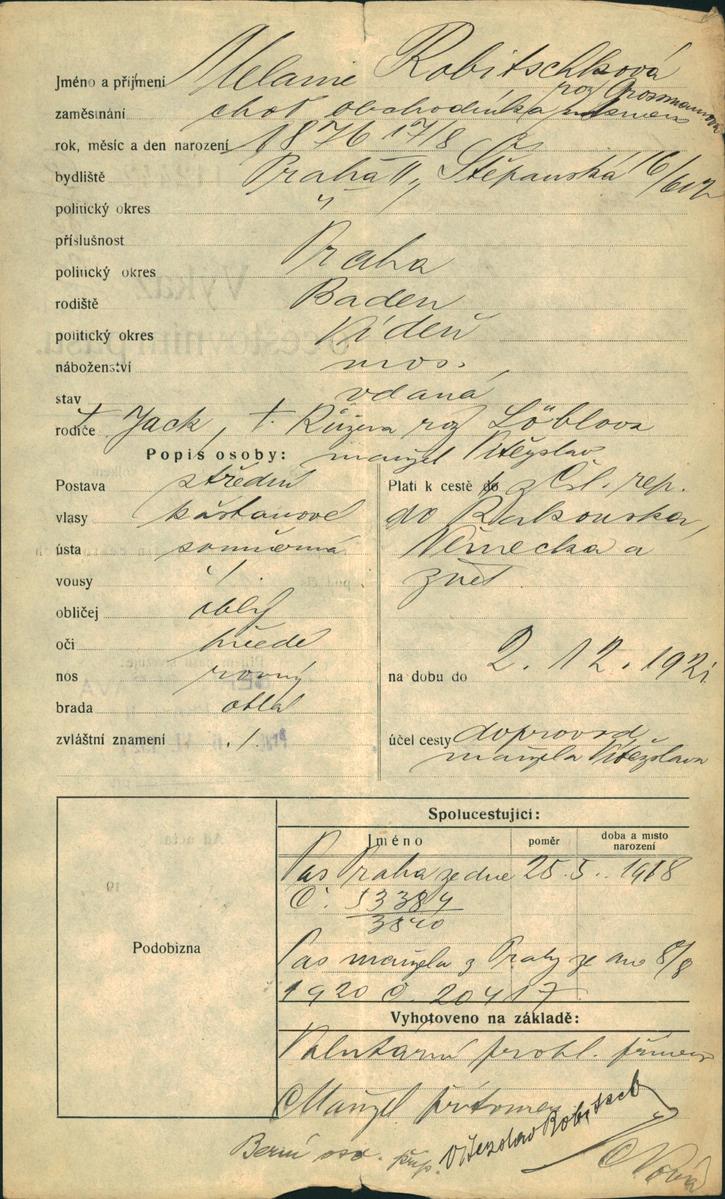 Jméno a příjmení Melanie Robitschková
roz Grossmannova
zaměstnání choť obchodníka
rok, měsíc a den narození 1876 17/8
bydliště Praha II, Štěpánská 16/612
politický okres "
příslušnost
politický okres Praha
rodiště Baden
politický okres Vídeň
náboženství mos.
stav vdaná
rodiče † Jack, †. Růžena roz Löblova
manžel Vítězslav
Popis osoby:
Postava střední
vlasy kaštanové
ústa souměrná
vousy ./.
obličej oblý
oči hnědé
nos rovný
brada oblá
zvláštní znamení ./.
Platí k cestě do z Čsl. rep.
do Rakouska,
Německa a
zpět
na dobu do 2. 12. 1921
účel cesty doprovod
manžela Vítězslava
Spolucestující:
Jméno poměr doba a místo narození
Pas Praha ze dne 25. 5. 1918
Č. 53384
3840
Pas manžela z Prahy ze dne 8/8
1920 č. 20417
Podobizna
Vyhotoveno na základě:
Valutární prohl.
Manžel přítomen
Vítězslav Robitschek
Berní osv. přip.